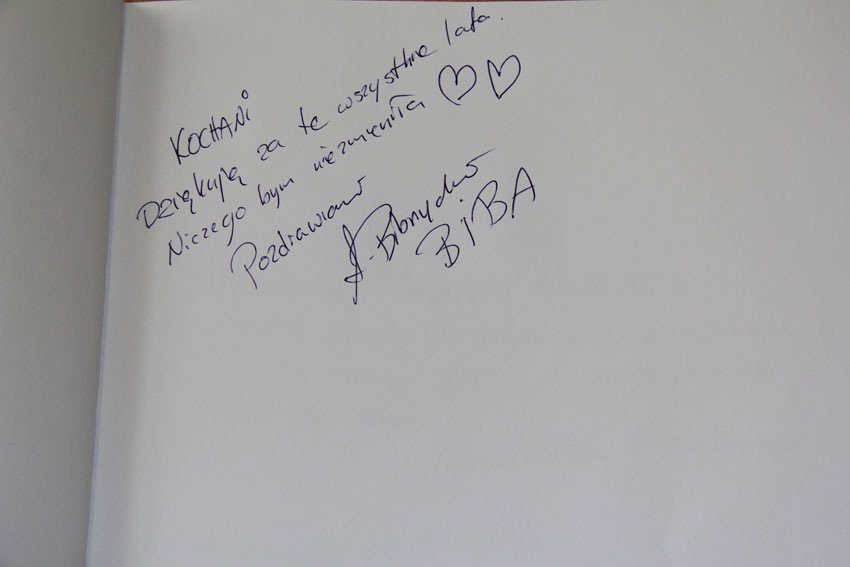 KOCHANi
Dziękuję za te wszystkie lata.
Niczego bym niezmieniła ♡ ♡
Pozdrawiam
BiBA